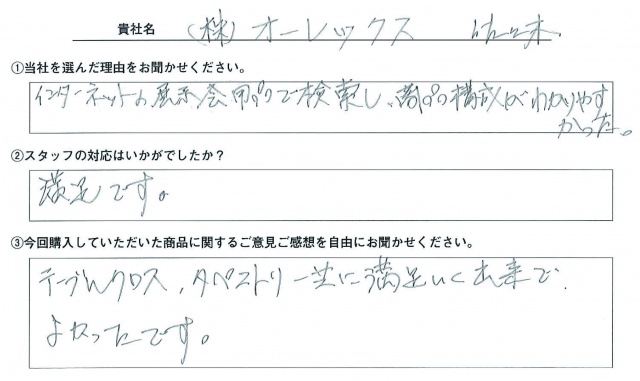 貴社名 (株)オーレックス 佐々木
①当社を選んだ理由をお聞かせください。
インターネットの展示会用品で検索し、商品の構成がわかりやす
かった。
②スタッフの対応はいかがでしたか？
満足です。
③今回購入していただいた商品に関するご意見ご感想を自由にお聞かせください。
テーブルクロス、タペストリー共に満足いく出来で
よかったです。